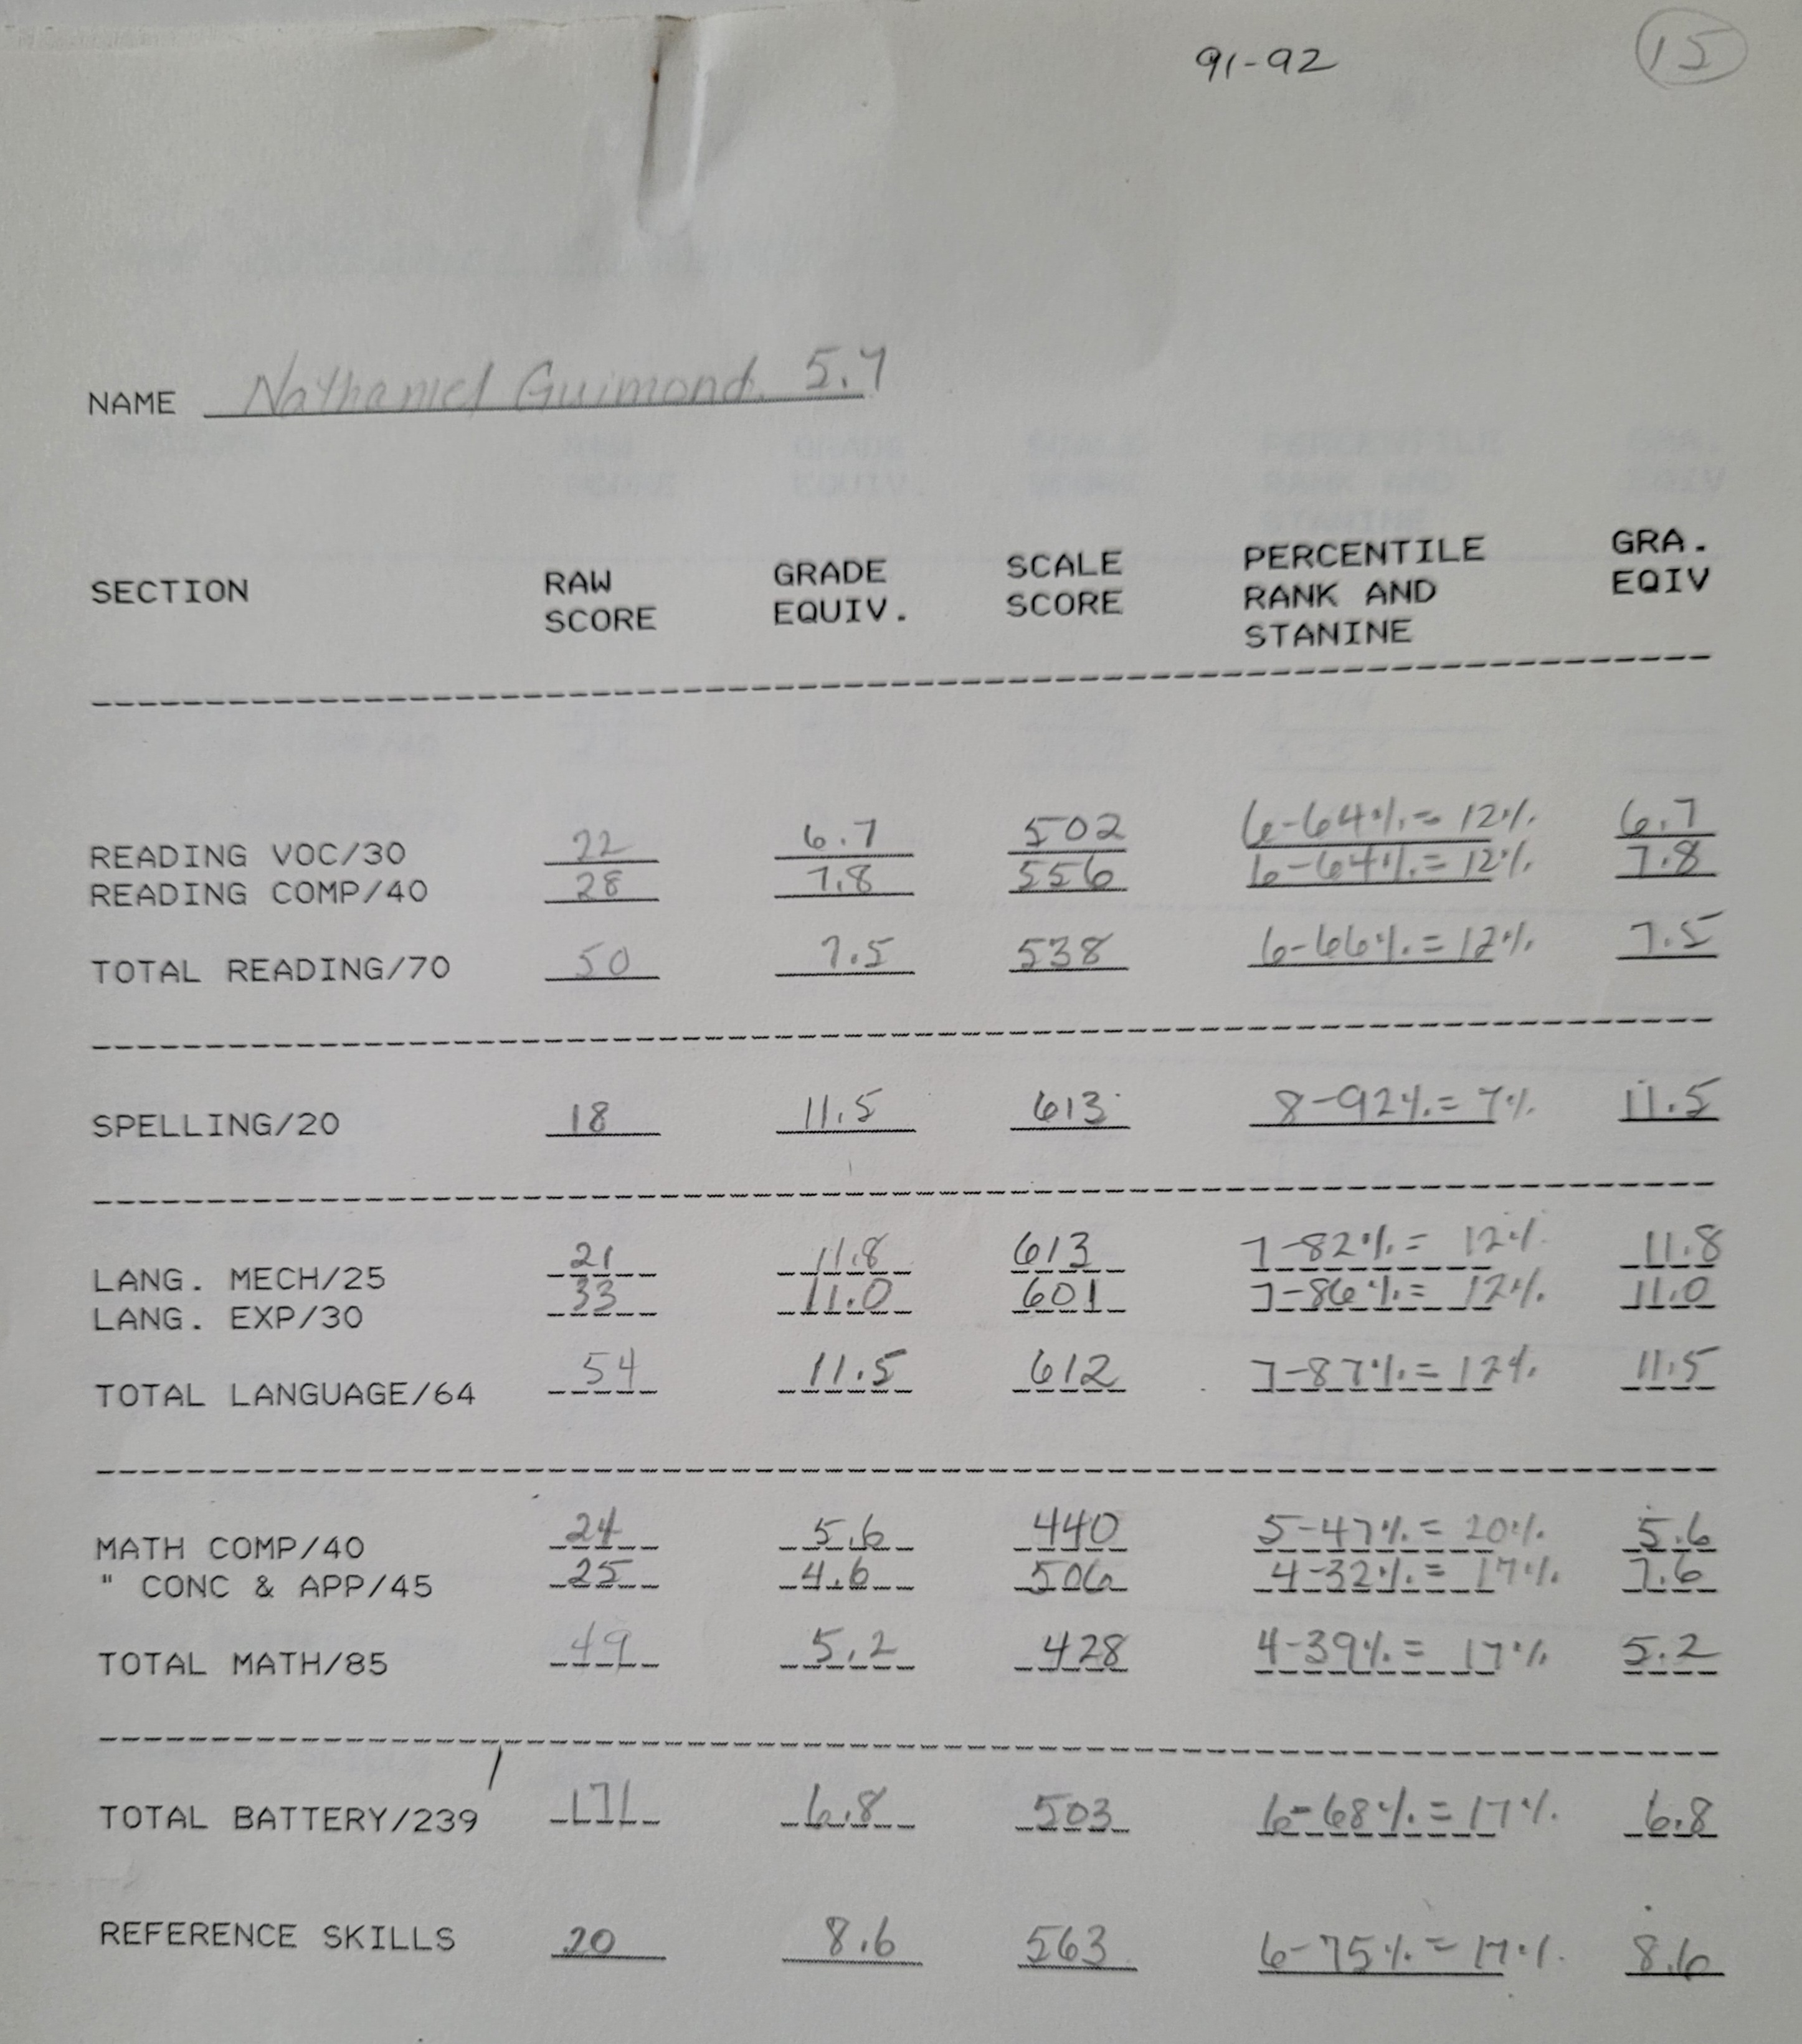 91-92 15
NAME Nathaniel Guimond. 5.7
SECTION RAW SCORE GRADE EQUIV. SCALE SCORE PERCENTILE RANK AND STANINE GRA. EQIV
READING VOC/30 22 6.7 502 6-64%= 12% 6.7
READING COMP/40 28 7.8 556 6-64%= 12% 7.8
TOTAL READING/70 50 7.5 538 6-66%= 12% 7.5
SPELLING/20 18 11.5 613 8-92%= 7% 11.5
LANG. MECH/25 21 11.8 613 7-82%= 12% 11.8
LANG. EXP/30 33 11.0 601 7-86%= 12% 11.0
TOTAL LANGUAGE/64 54 11.5 612 7-87%= 12% 11.5
MATH COMP/40 24 5.6 440 5-47%= 20% 5.6
" CONC & APP/45 25 4.6 506 4-32%= 17% 7.6
TOTAL MATH/85 49 5.2 428 4-39%= 17% 5.2
TOTAL BATTERY/239 171 6.8 503 6-68%=17% 6.8
REFERENCE SKILLS 20 8.6 563 6-75%=17% 8.6